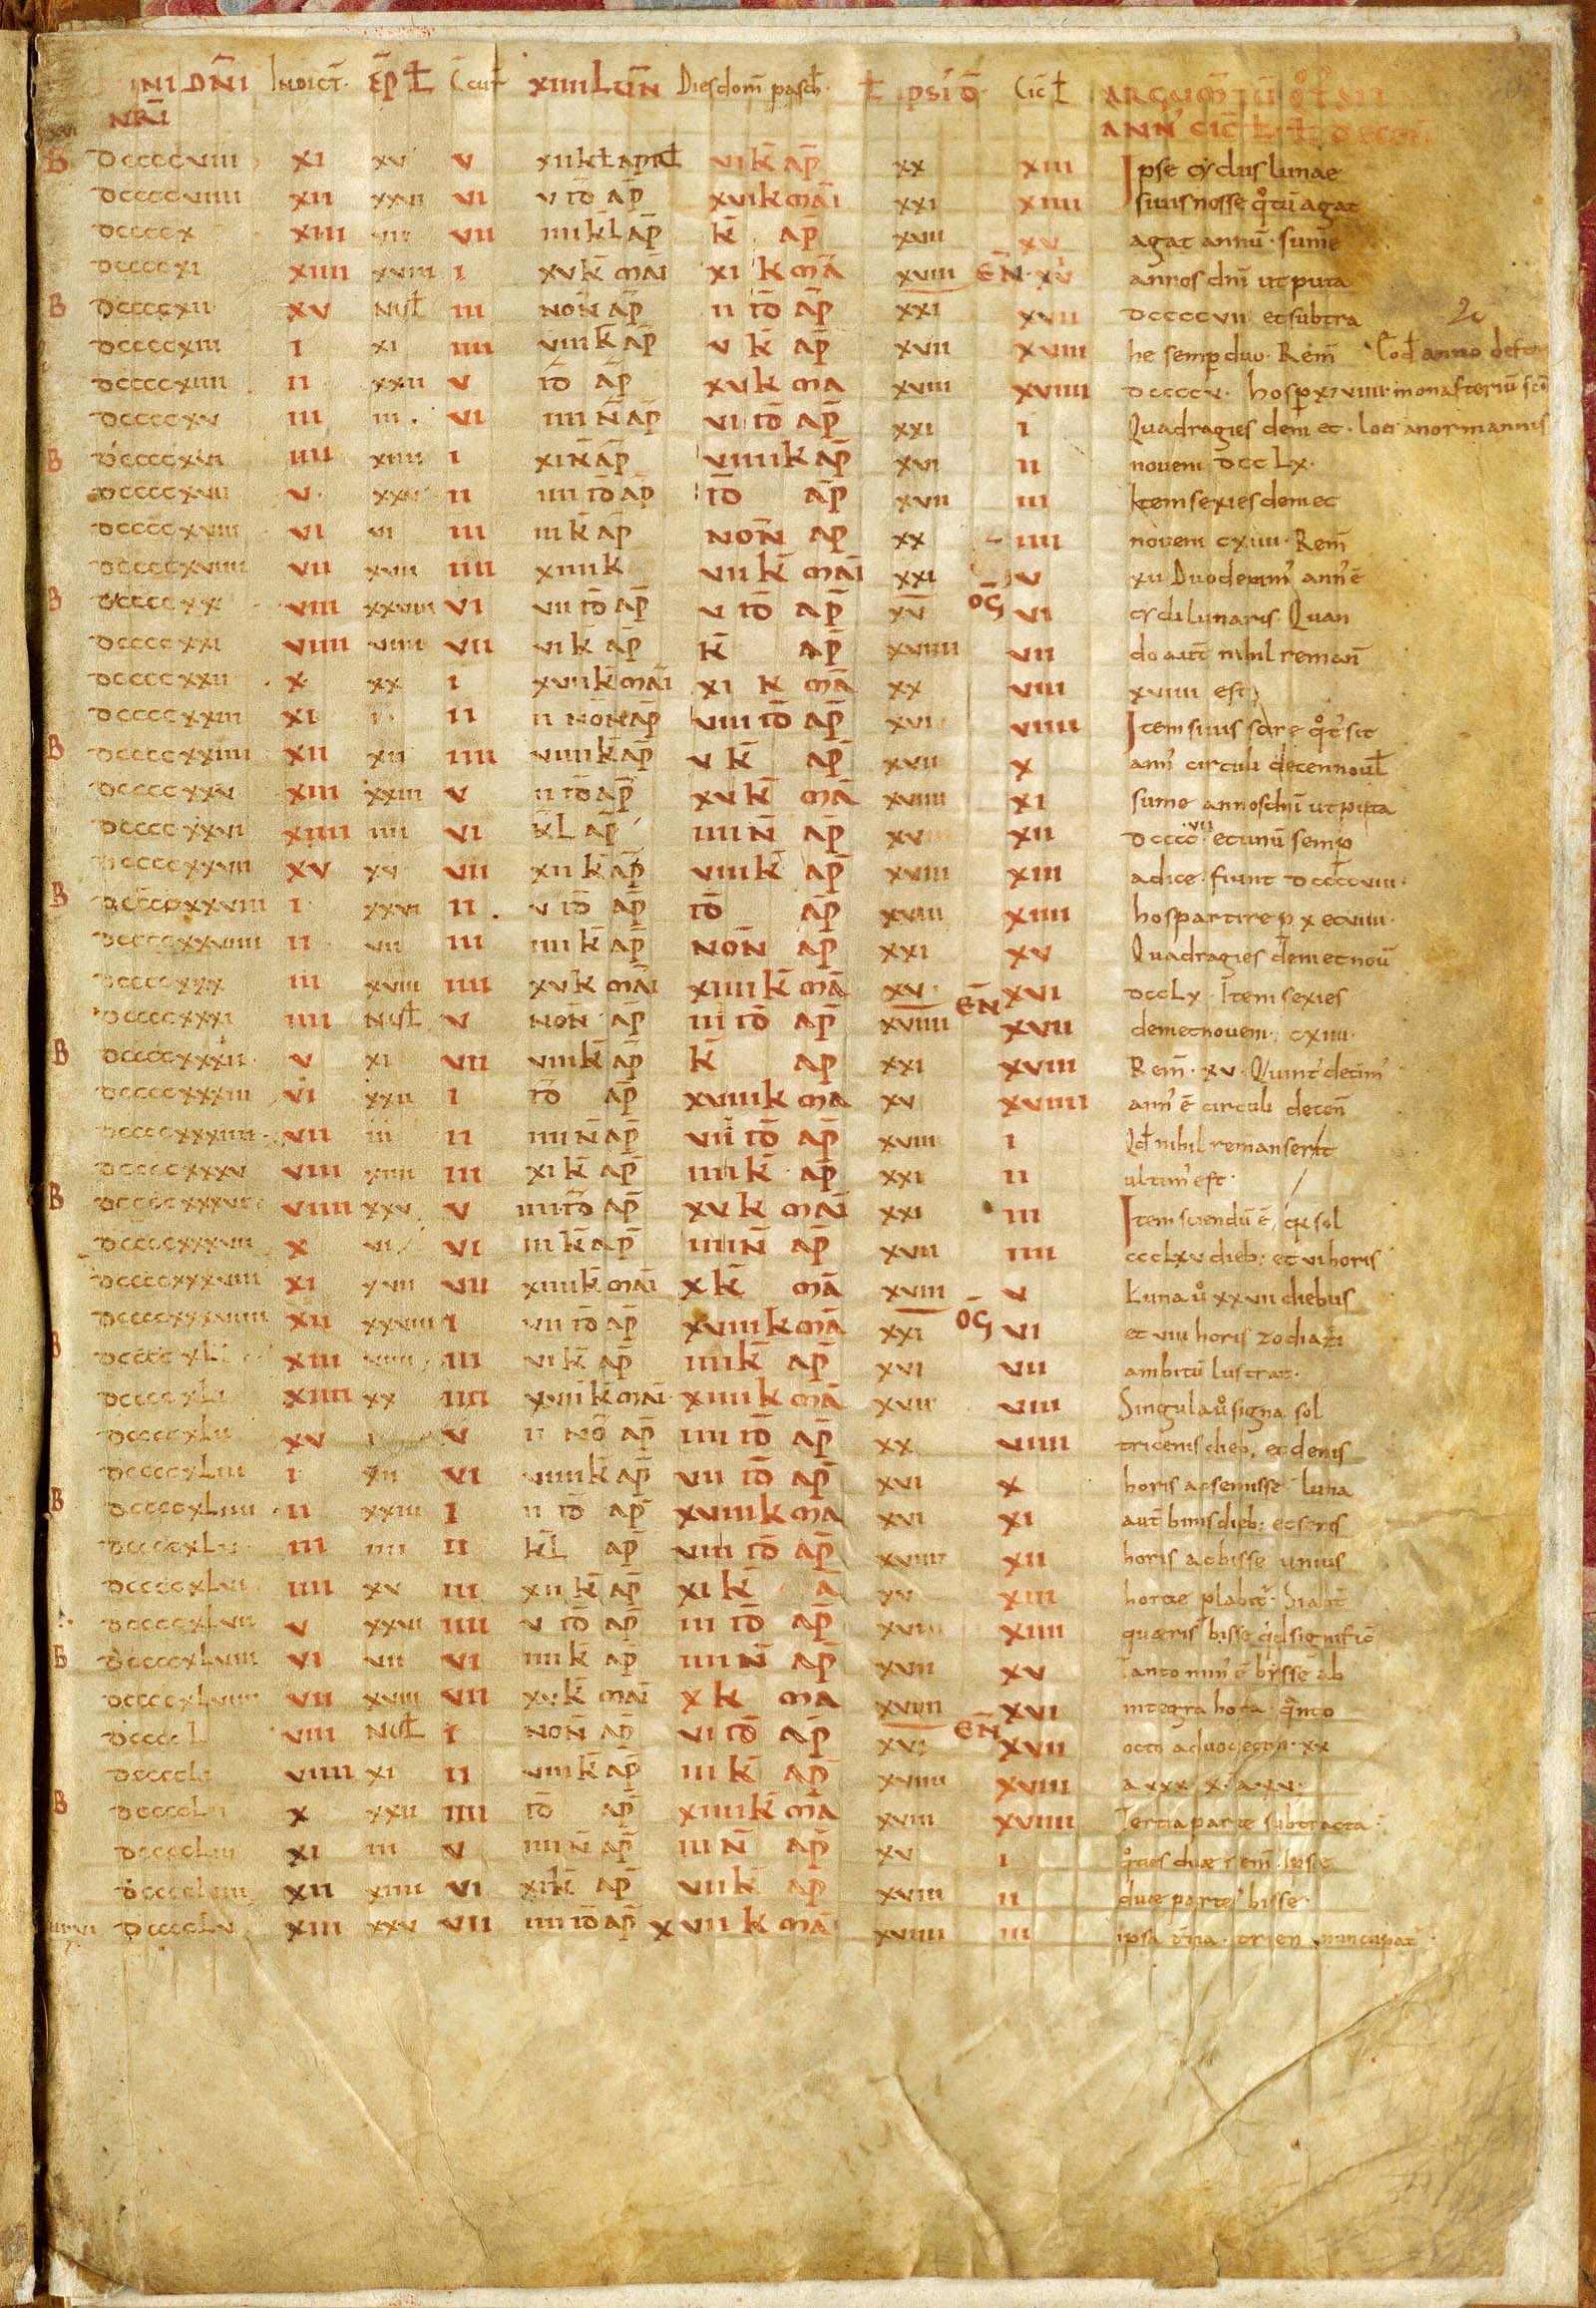 INI DN̄I Indict̄. ĒP Ł C̄cuꝉ XIIII LŪN Dies dom̄ pasch̄. Ł IPSI' D̄. CicꝈ ARGUM̄TŪ
NR̄I ANN' CIC̄ Ł.
B DCCCCVIII XI XV V XII kł april VI k̄ ap̄ XX XIII Ipse cyclus lunae
DCCCCVIIII XII XXVI VI V ID̄ AP̄ XVI k mai XXI XIIII si uis nosse qͦtū agat
DCCCCX XIII VII VII IIII kł ap̄ k̄ ap̄ XVIII XV agat annū. sume
DCCCCXI XIIII XVIII I XV k̄ mai XI k mā XVIII ĒN. XVI annos dn̄i ut puta
B DCCCCXII XV NUꝈ III NON̄ AP̄ II ID̄ AP̄ XXI XVII DCCCCVII et subtra
DCCCCXIII I XI IIII VIII k ap̄ V k̄ ap̄ XVII XVIII he semp̄ duo. Rem̄ Eod̄ anno
DCCCCXIIII II XXII V ID̄ AP̄ XV k ma XVIII XVIIII DCCCCV. hos p̄ X 7 VIIII monasteriū sc̄i
DCCCCXV III III. VI IIII N̄ AP̄ VI ID̄ AP̄ XXI I Quadragies dem et. loci a normannis
B DCCCCXVI IIII XIIII I XI N̄ AP̄ VIIII k ap̄ XVI II novem DCCLX.
DCCCCXVII V XXV II IIII ID̄ AP̄ ID̄ AP̄ XVII III Item sexies dem et
DCCCCXVIII VI VI III III k̄ ap̄ NON̄ AP XX IIII novem CXIIII. Rem̄
DCCCCXVIIII VII XVII IIII XIIII k VII k̄ mai XXI V XII Duodecim' ann' ē
B DCCCCXX VIII XXVIII VI VII ID̄ AP̄ V ID̄ AP̄ XV ŌG VI cycli lunaris. Quan
DCCCCXXI VIIII VIIII VII VI k̄ ap̄ k̄ ap̄ XVIIII VII do aut̄ nihil reman̄
DCCCCXXII X XX I XVII k mai XI k mā XX VIII XVIIII est
DCCCCXXIII XI I II II NON AP̄ VIII ID̄ AP̄ XVI VIIII Item si uis scire qͦt' sit
B DCCCCXXIIII XII XII IIII VIIII k̄ ap̄ V k̄ ap̄ XVII X ann' circuli decennouꝉ
DCCCCXXV XIII XXIII V II ID̄ AP̄ XV k̄ mā XVIIII XI sume annos dn̄i ut puta
DCCCCXXVI XIIII IIII VI k̄l ap̄ IIII N̄ AP̄ XV XII DCCCCVII et unū semp̄
DCCCCXXVII XV XV VII XII k ap̄ VIIII k̄ ap̄ XVIII XIII adice. fiunt DCCCCVIII.
B DCCCCXXVIII I XXVI II. V ID̄ AP̄ ID̄ AP̄ XVIII XIIII hos partire p̄ X et VIIII.
DCCCCXXVIIII II VII III IIII k̄ ap̄ NON̄ AP̄ XXI XV Quadragies dem et nou̅
DCCCCXXX III XVIII IIII XV k mai XIIII k̄ mā XV. XVI DCCLX. Item sexies
DCCCCXXXI IIII NUꝈ V NON̄ AP̄ III ID̄ AP̄ XVIIII ĒN XVII dem et novem. CXIIII.
B DCCCCXXXII V XI VII VIII k̄ ap̄ k̄ ap XXI XVIII Rem̄. XV. Quint' decim'
DCCCCXXXIII VI XXII I ID̄ AP̄ XVIIII k ma XV XVIIII ann' ē circuli decen̄
DCCCCXXXIIII VII III II IIII N̄ AP̄ VII ID̄ AP̄ XVIII I Qd̄ nihil remanserit
DCCCCXXXV VIII XIIII III XI k̄ ap̄ IIII k̄ ap̄ XXI II ultim' est.
B DCCCCXXXVI VIIII XXV V IIII ID̄ AP̄ XV k mai XXI III Item sciendū ē, qd̄ sol
DCCCCXXXVII X VI VI III k̄ ap̄ IIII N̄ AP̄ XVII IIII CCCLXV dieb; et VI horis
DCCCCXXXVIII XI XVII VII XIIII k mai X k̄ mā XVIII V Luna uͦ XXVII diebus
DCCCCXXXVIIII XII XXVIII I VII ID̄ AP̄ XVIIII k mā XXI ŌG VI et VIII horis zodiaci
B DCCCCXL XIII VIIII III VI k̄ ap̄ IIII k̄ ap̄ XVI VII ambitū lustrat.
DCCCCXLI XIIII XX IIII XVII k̄ mai XIIII k mā XVII VIII Singula uͦ signa sol
DCCCCXLII XV I V II NŌ AP̄ IIII ID̄ AP̄ XX VIIII tricenis dieb; et denis
DCCCCXLIII I XII VI VIIII k̄ ap̄ VII ID̄ AP̄ XVI X horis ac semisse luna
B DCCCCXLIIII II XXIII I II ID̄ AP̄ XVIIII k ma XVI XI aut̄ binis dieb; et senis
DCCCCXLV III IIII II k̄l ap̄ VIII ID̄ AP̄ XVIIII XII horis ac bisse unius
DCCCCXLVI IIII XV III XII k̄ ap̄ XI k̄ ā XV XIII horae
DCCCCXLVII V XXVI IIII V ID̄ AP̄ III ID̄ AP̄ XVI XIIII quaeris bisse qid significꝫ
B DCCCCXLVIII VI VII VI IIII k̄ ap̄ IIII N̄ AP̄ XVII XV Tanto min' ē bisse ab
DCCCCXLVIIII VII XVIII VII XV k̄ mai X k ma XVIIII XVI integra hora. qͣnto
DCCCCL VIII NUꝈ I NON̄ AP̄ VI ID̄ AP̄ XVI ĒN XVII octo a duodecim. XX
DCCCCLI VIIII XI II VIII k̄ ap̄ III k̄ ap̄ XVIIII XVIII a XXX X. a XV.
B DCCCCLII X XXII IIII ID̄ AP̄ XIIII k̄ mā XVIII XVIIII Tertia parte subtracta
DCCCCLIII XI III V IIII N̄ AP̄ III N̄ AP̄ XV I
DCCCCLIIII XII XIIII VI XI k̄ ap̄ VII k̄ ap XVIII II duae partes bisse.
DCCCCLV XIII XXV VII IIII ID̄ AP̄ XVII k mā XVIIII III ipsa t̄tia. trien nuncupat̄.